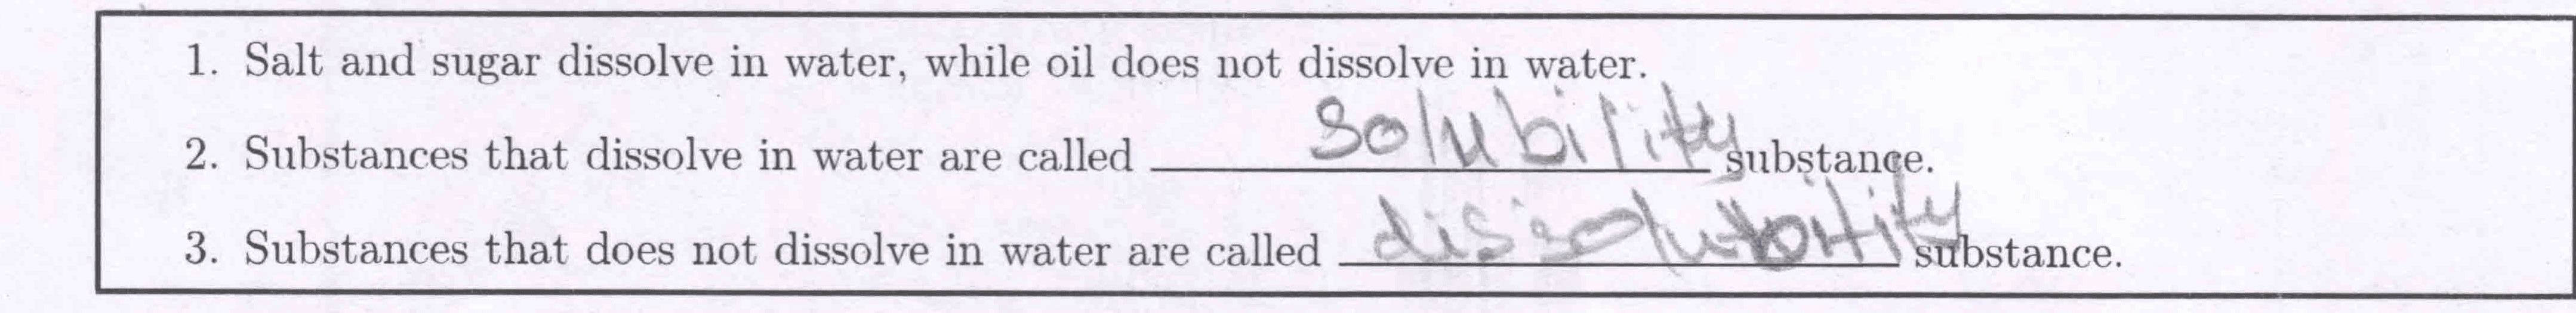 1. Salt and sugar dissolve in water, while oil does not dissolve in water.
2. Substances that dissolve in water are called solubility substance.
3. Substances that does not dissolve in water are called dissolubility substance.